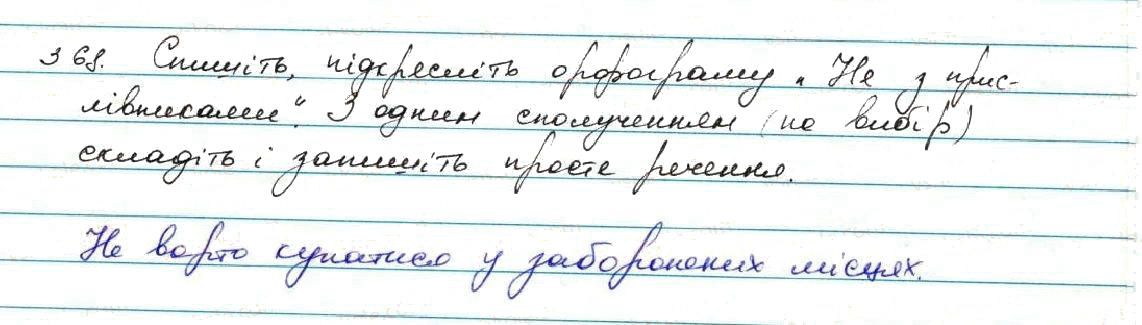 368. Спишіть, підкресліть орфограму „Не з прис-
лівниками". З одним сполученням (на вибір)
складіть і запишіть просте речення.
Не варто купатися у заборонених місцях.